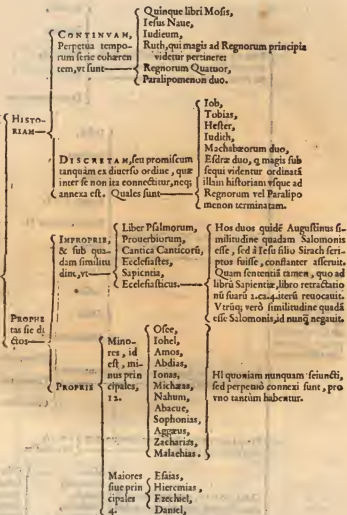 CONTINVAM,
Perpetua tempo-
rum serie cohæren
tem, vt sunt
Quinque libri Mosis,
Iesus Naue,
Iudicum,
Ruth, qui magis ad Regnorum principia
videtur pertinere:
Regnorum Quatuor,
Paralipomenon duo.
HISTO-
RIAM
DISCRETAM, seu promiscuam
tanquàm ex diuerso ordine, quæ
inter se non ita connectitur, neq;
annexa est. Quales sunt
Iob,
Tobias,
Hester,
Iudich,
Machabæorum duo,
Esdræ duo, q magis sub
sequi videntur ordinatã
illam historiam vsque ad
Regnorum vel Paralipo
menon terminatam.
PROPHE
tas sic di
ctos
IMPROPRIE,
& sub qua-
dam similitu
dine, vt
Liber Psalmorum,
Prouerbiorum,
Cantica Canticorũ,
Ecclesiastes,
Sapientia,
Ecclesiasticus.
Hos duos quidẽ Augustinus si-
militudine quadam Salomonis
esse, sed à Iesu filio Sirach scri-
ptos fuisse, constanter asseruit.
Quam sententiã tamen, quo ad
librũ Sapientiæ, libro retractatio
nũ suarũ 2.ca.4.iterũ reuocauit.
Vtrũq; verò similitudine quadã
esse Salomonis, id nunq̃ negauit.
PROPRIE
Mino-
res, id
est, mi-
nus prin
cipales,
12.
Osee,
Iohel,
Amos,
Abdias,
Ionas,
Michæas,
Nahum,
Abacuc,
Sophonias,
Aggæus,
Zacharias,
Malachias.
Hi quoniam nunquam seiuncti,
sed perpetuò connexi sunt, pro
vno tantùm habentur.
Maiores
siue prin
cipales
4.
Esaias,
Hieremias,
Ezechiel,
Daniel,